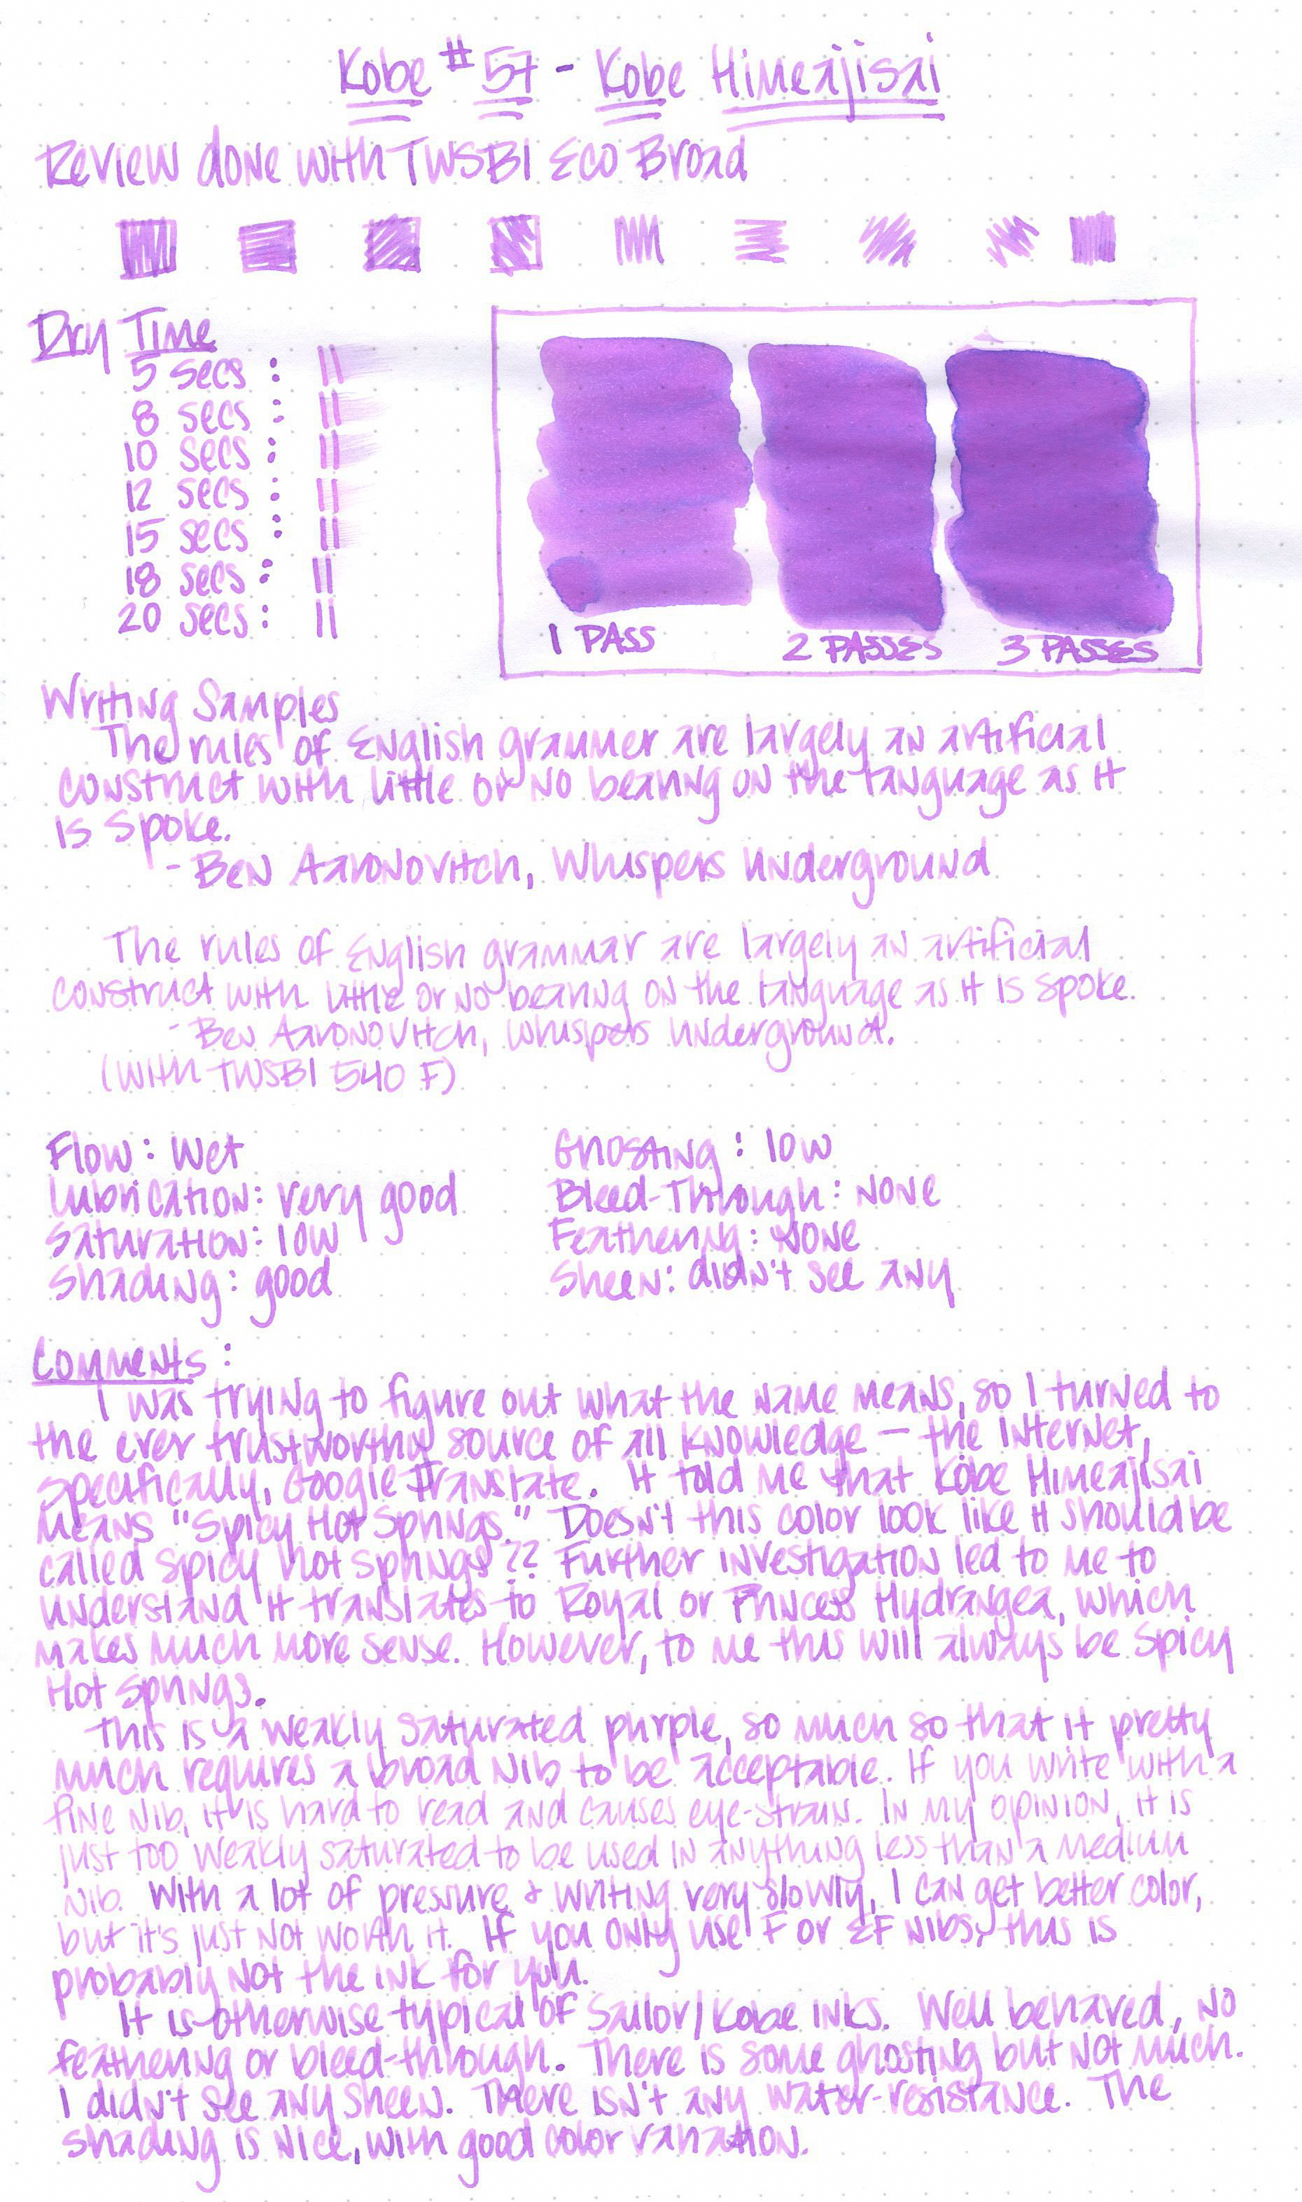 Kobe #57 - Kobe Himeajisai
Review done with TWSBI Eco Broad
Dry Time
5 secs :
8 secs :
10 secs :
12 secs :
15 secs :
18 secs :
20 secs :
1 PASS
2 PASSES
3 PASSES
Writing Samples
The rules of English grammer are largely an artificial
construct with little or no bearing on the language as it
is spoke.
- Ben Aaronovitch, Whispers Underground
The rules of English grammar are largely an artificial
construct with little or no bearing on the language as it is spoke.
- Ben Aaronovitch, Whispers Underground.
(with TWSBI 540 F)
Flow: Wet
Lubrication: very good
Saturation: low
Shading: good
Ghosting: low
Bleed-Through: None
Feathering: None
Sheen: didn't see any
Comments:
I was trying to figure out what the name means, so I turned to
the ever trustworthy source of all knowledge — the Internet,
specifically, Google Translate. It told me that Kobe Himeajisai
means "Spicy Hot Springs." Doesn't this color look like it should be
called spicy hot springs?? Further investigation led to me to
understand it translates to Royal or Princess Hydrangea, which
makes much more sense. However, to me this will always be Spicy
Hot Springs.
This is a weakly saturated purple, so much so that it pretty
much requires a broad nib to be acceptable. If you write with a
fine nib, it is hard to read and causes eye-strain. In my opinion, it is
just too weakly saturated to be used in anything less than a medium
nib. With a lot of pressure & writing very slowly, I can get better color,
but it's just not worth it. If you only use F or EF nibs, this is
probably not the ink for you.
It is otherwise typical of Sailor/Kobe inks. Well behaved, no
feathering or bleed-through. There is some ghosting but not much.
I didn't see any sheen. There isn't any water-resistance. The
shading is nice, with good color variation.